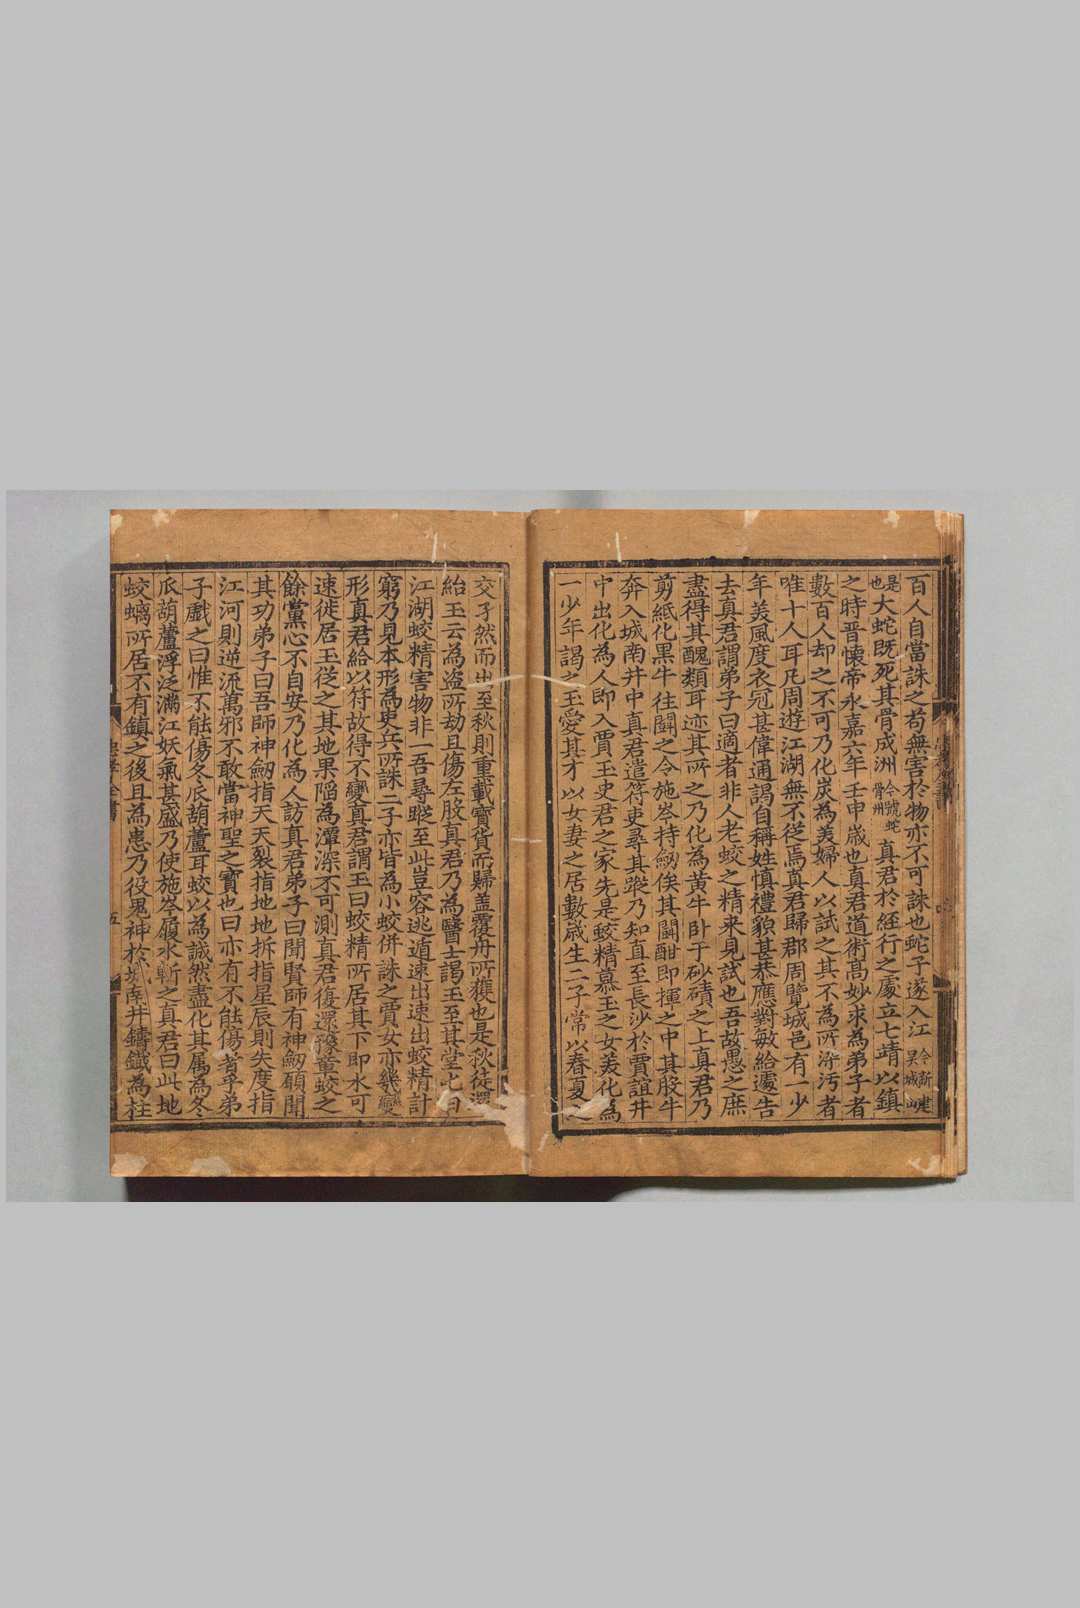 百人自當誅之苟無害於物亦不可誅也蛇子遂入江今新建吳城山
是也大蛇既死其骨成洲今號蛇骨州真君於經行之處立七靖以鎮
之時晋懷帝永嘉六年壬申歲也真君道術高妙求為弟子者
數百人却之不可乃化炭為美婦人以試之其不為所涴污者
唯十人耳凡周遊江湖無不從焉真君歸郡周覽城邑有一少
年美風度衣冠甚偉通謁自稱姓慎禮貌甚恭應對敏給遽告
去真君謂弟子曰適者非人老蛟之精来見試也吾故愚之庶
盡得其醜類耳迹其所之乃化為黄牛卧于砂磧之上真君乃
剪紙化黒牛往鬪之令施岑持劒俟其鬪酣即揮之中其股牛
奔入城南井中真君遣符吏尋其蹤乃知直至長沙於賈誼井
中出化為人即入賈玉史君之家先是蛟精慕玉之女美化為
一少年謁之玉愛其才以女妻之居數歲生二子常以春夏之
交孑然而出至秋則重載寶貨而歸盖覆舟所獲也是秋徒還
紿玉云為盜所劫且傷左股真君乃為醫士謁玉至其堂七日
江湖蛟精害物非一吾尋蹤至此豈容逃遁速出速出蛟精計
窮乃見本形為吏兵所誅二子亦皆為小蛟併誅之賈女亦幾變
形真君給以符故得不變真君謂玉曰蛟精所居其下即水可
速徙居玉從之其地果陷為潭深不可測真君復還豫章蛟之
餘黨心不自安乃化為人訪真君弟子曰聞賢師有神劒願聞
其功弟子曰吾師神劒指天天裂指地地拆指星辰則失度指
江河則逆流萬邪不敢當神聖之寶也曰亦有不能傷者乎弟
子戲之曰惟不能傷冬瓜葫蘆耳蛟以為誠然盡化其属為冬
瓜葫蘆浮泛滿江妖氣甚盛乃使施岑履水斬之真君曰此地
蛟螭所居不有鎮之後且為患乃役鬼神於城南井鑄鐵為柱
五